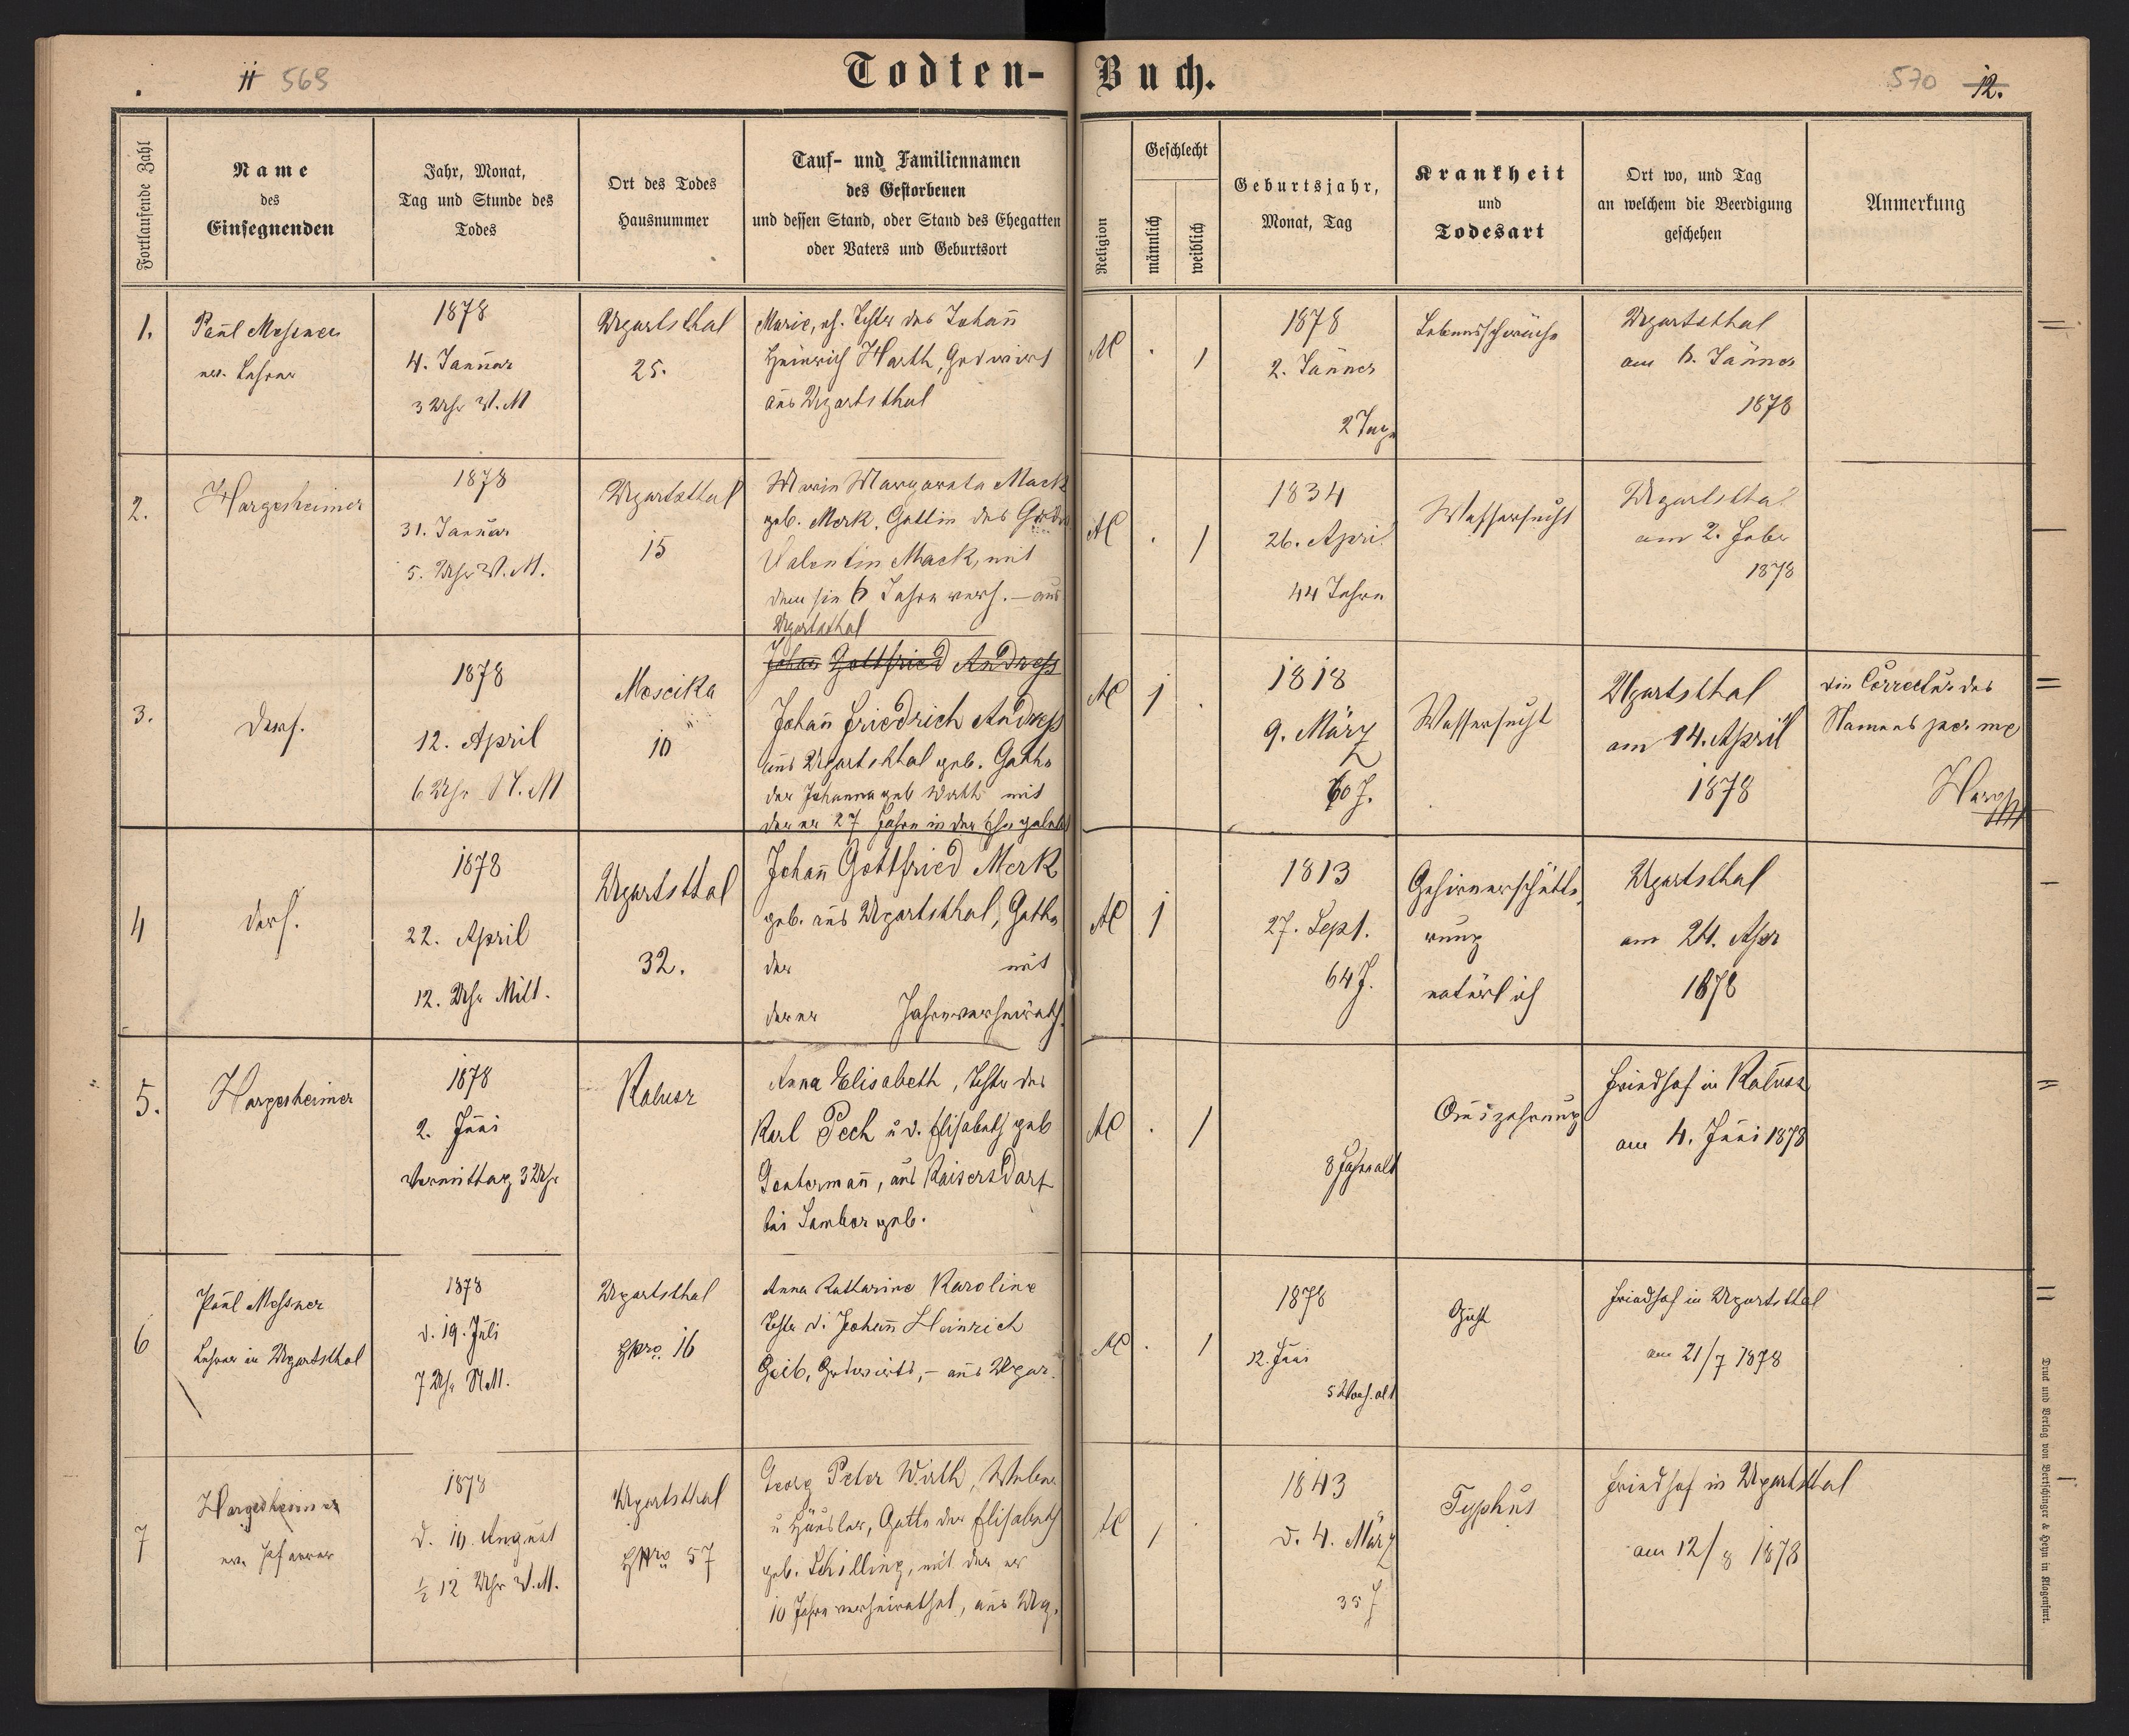 11 569
Todten-Buch.
570 12.
Fortlaufende Zahl
Name
des
Einsegnenden
Jahr, Monat,
Tag und Stunde des
Todes
Ort des Todes
Hausnummer
Tauf- und Familiennamen
des Gestorbenen
und dessen Stand, oder Stand des Ehegatten
oder Vaters und Geburtsort
Religion
Geschlecht
männlich
weiblich
Geburtsjahr,
Monat, Tag
Krankheit
und
Todesart
Ort wo, und Tag
an welchem die Beerdigung
geschehen
Anmerkung
1.
Paul Messner
ev. Lehrer
1878
4. Januar
3 Uhr V. M
Ugartsthal
25.
Marie, eh. Tochter des Johann
Heinrich Harth, Grdwirt
aus Ugartsthal
AC . 1
1878
2. Jänner
2 Tage
Lebensschwäche
Ugartsthal
am 6. Jänner
1878
2.
Hargesheimer
1878
31. Januar
5. Uhr V. M.
Ugartsthal
15
Maria Margareta Mack
geb. Merk, Gattin des
Valentin Mack, mit
dem sie 6 Jahre verh. – aus
Ugartsthal
AC . 1
1834
26. April
44 Jahre
Wassersucht
Ugartsthal
am 2. Feber
1878
3.
ders.
1878
12. April
6 Uhr N. M
Moscika
10
Johann Gottfried Andress
Johann Friedrich Andress
aus Ugartsthal geb. Gatte
der Johanna geb Wirth mit
der er 27 Jahre in der Ehe gelebt
AC 1 .
1818
9. März
60 J.
Wassersucht
Ugartsthal
am 14. April
1878
die Correctur des
Namens per me
Harg
4
ders.
1878
22. April
12. Uhr Mitt.
Ugartsthal
32.
Johann Gottfried Merk
geb. aus Ugartsthal, Gatte
der mit
der er Jahre verheirath.
AC 1
1813
27. Sept.
64 J.
Gehirnerschütte-
rung
natürlich
Ugartsthal
am 24. Apr
1878
5.
Hargesheimer
1878
2. Juni
Vormittag 3 Uhr
Kalusz
Anna Elisabeth, Tochter des
Karl Pech u d. Elisabeth geb
Gentermann, aus Kaisersdorf
bei Sambor geb.
AC . 1
8 Jahre alt
Auszehrung
Friedhof in Kalusz
am 4. Juni 1878
6
Paul Messner
Lehrer in Ugartsthal
1878
d. 19. Juli
7 Uhr N.M.
Ugartsthal
HNro. 16
Anna Katharine Karoline
Tochter d. Johann Heinrich
Geib, Grdwirts, – aus Ugar.
AC . 1
1878
12. Juni
5 Woch. alt
Friedhof in Ugartsthal
am 21/7 1878
7
Hargesheimer
ev. Pfarrer
1878
d. 10. August
½ 12 Uhr V.M.
Ugartsthal
HNro 57
Georg Peter Wirth, Weber
u Häusler, Gatte der Elisabeth
geb. Schilling, mit der er
10 Jahre verheirathet, aus Ug.
AC 1 .
1843
d. 4. März
35 J
Typhus
Friedhof in Ugartsthal
am 12/8 1878
Druck und Verlag von Bertschinger & Heyn in Klagenfurt.